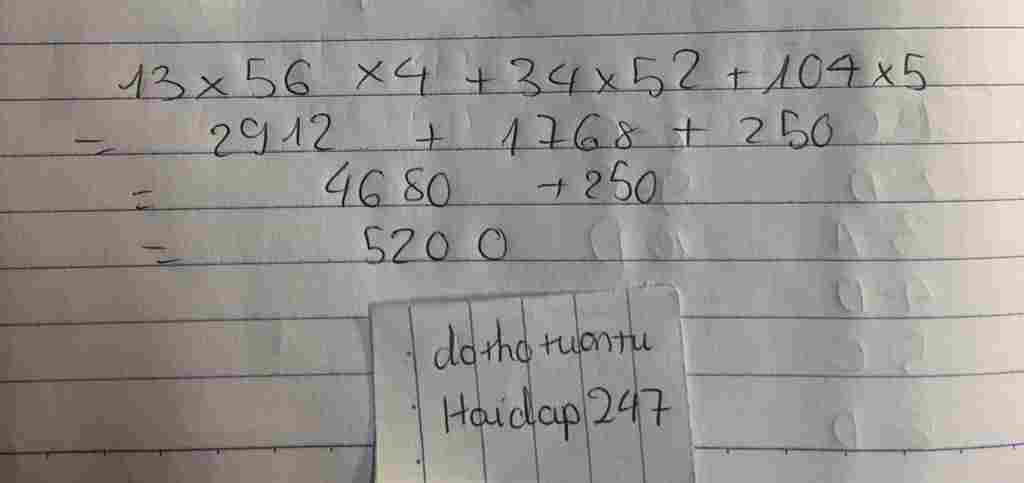 13 x 56 x 4 + 34 x 52 + 104 x 5
= 2912 + 1768 + 250
= 4680 + 250
= 5200
dothotuontu
Hoidap247